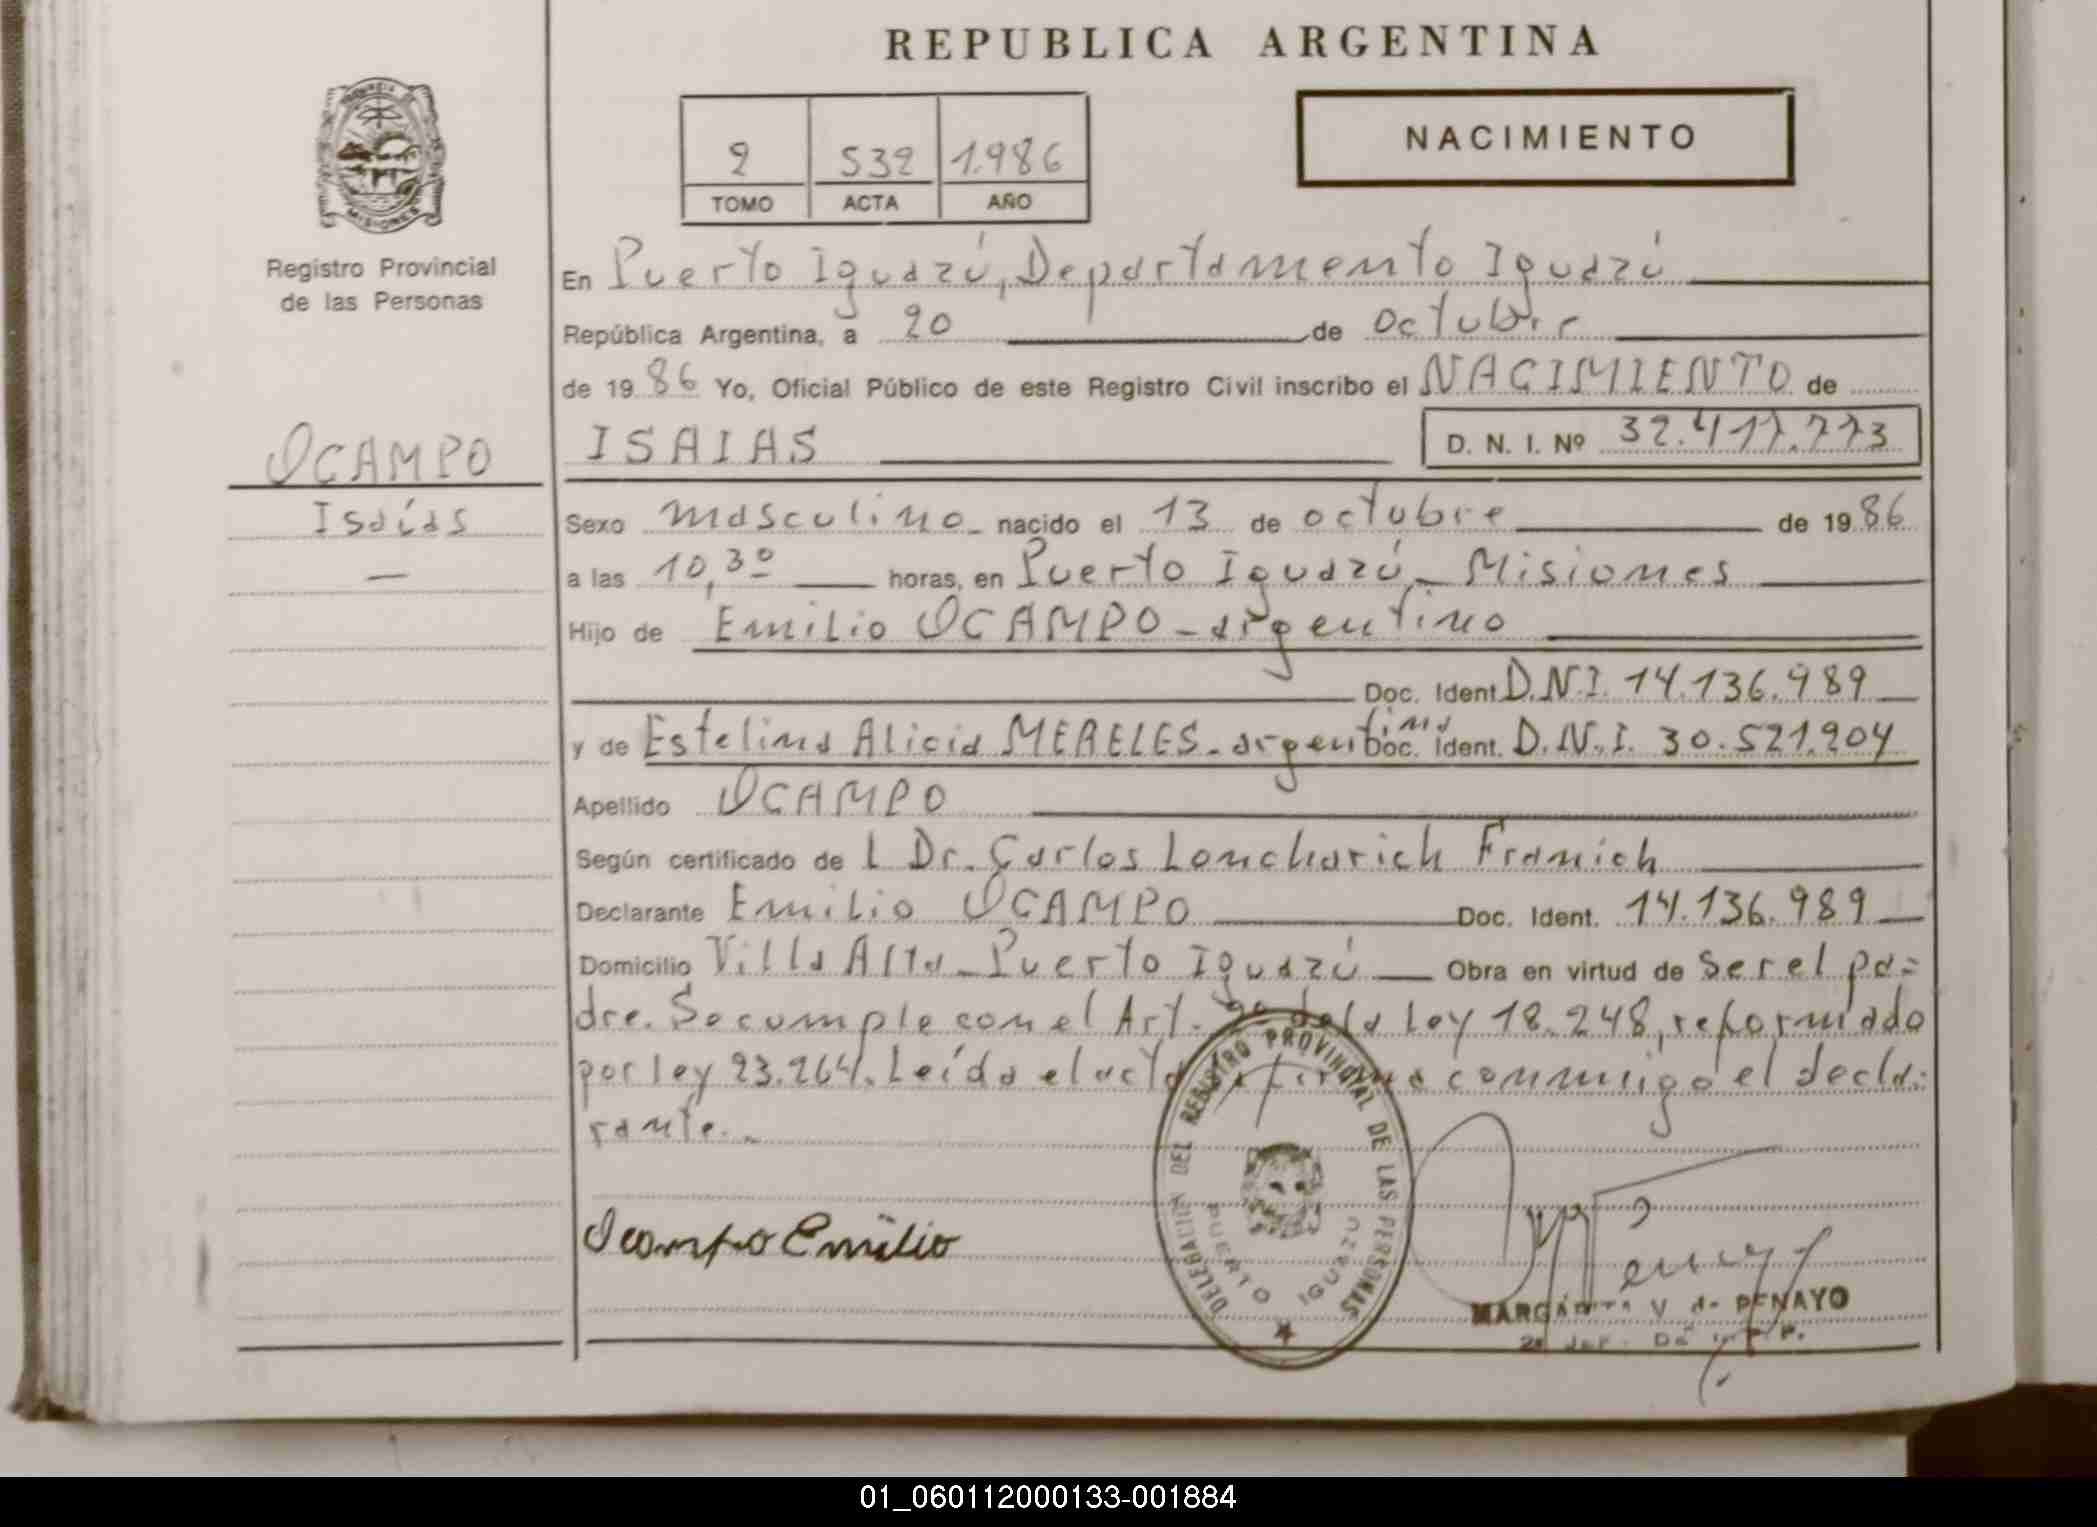 REPUBLICA ARGENTINA
MISIONES
Registro Provincial
de las Personas
2 532 1.986
TOMO ACTA AÑO
NACIMIENTO
En Puerto Iguazú, Departamento Iguazú
República Argentina, a 20 de octubre
de 1986 Yo, Oficial Público de este Registro Civil inscribo el NACIMIENTO de
OCAMPO
Isaías
ISAIAS D. N. I. Nº 32.417.773
Sexo masculino nacido el 13 de octubre de 1986
a las 10,30 horas, en Puerto Iguazú - Misiones
Hijo de Emilio OCAMPO - argentino
Doc. Ident. D.N.I. 14.136.989
y de Estelina Alicia MERELES - argentina Doc. Ident. D.N.I. 30.521.904
Apellido OCAMPO
Según certificado de l Dr. Carlos Loncharich Franich
Declarante Emilio OCAMPO Doc. Ident. 14.136.989
Domicilio Villa Alta - Puerto Iguazú Obra en virtud de ser el pa=
dre. Se cumple con el Art. de la Ley 18.248, reformado
por ley 23.264. Leída el acta firma conmigo el decla-
rante.
DELEGACION DEL REGISTRO PROVINCIAL DE LAS PERSONAS
PUERTO IGUAZU
Ocampo Emilio
MARGARITA V. de PENAYO
01_060112000133-001884